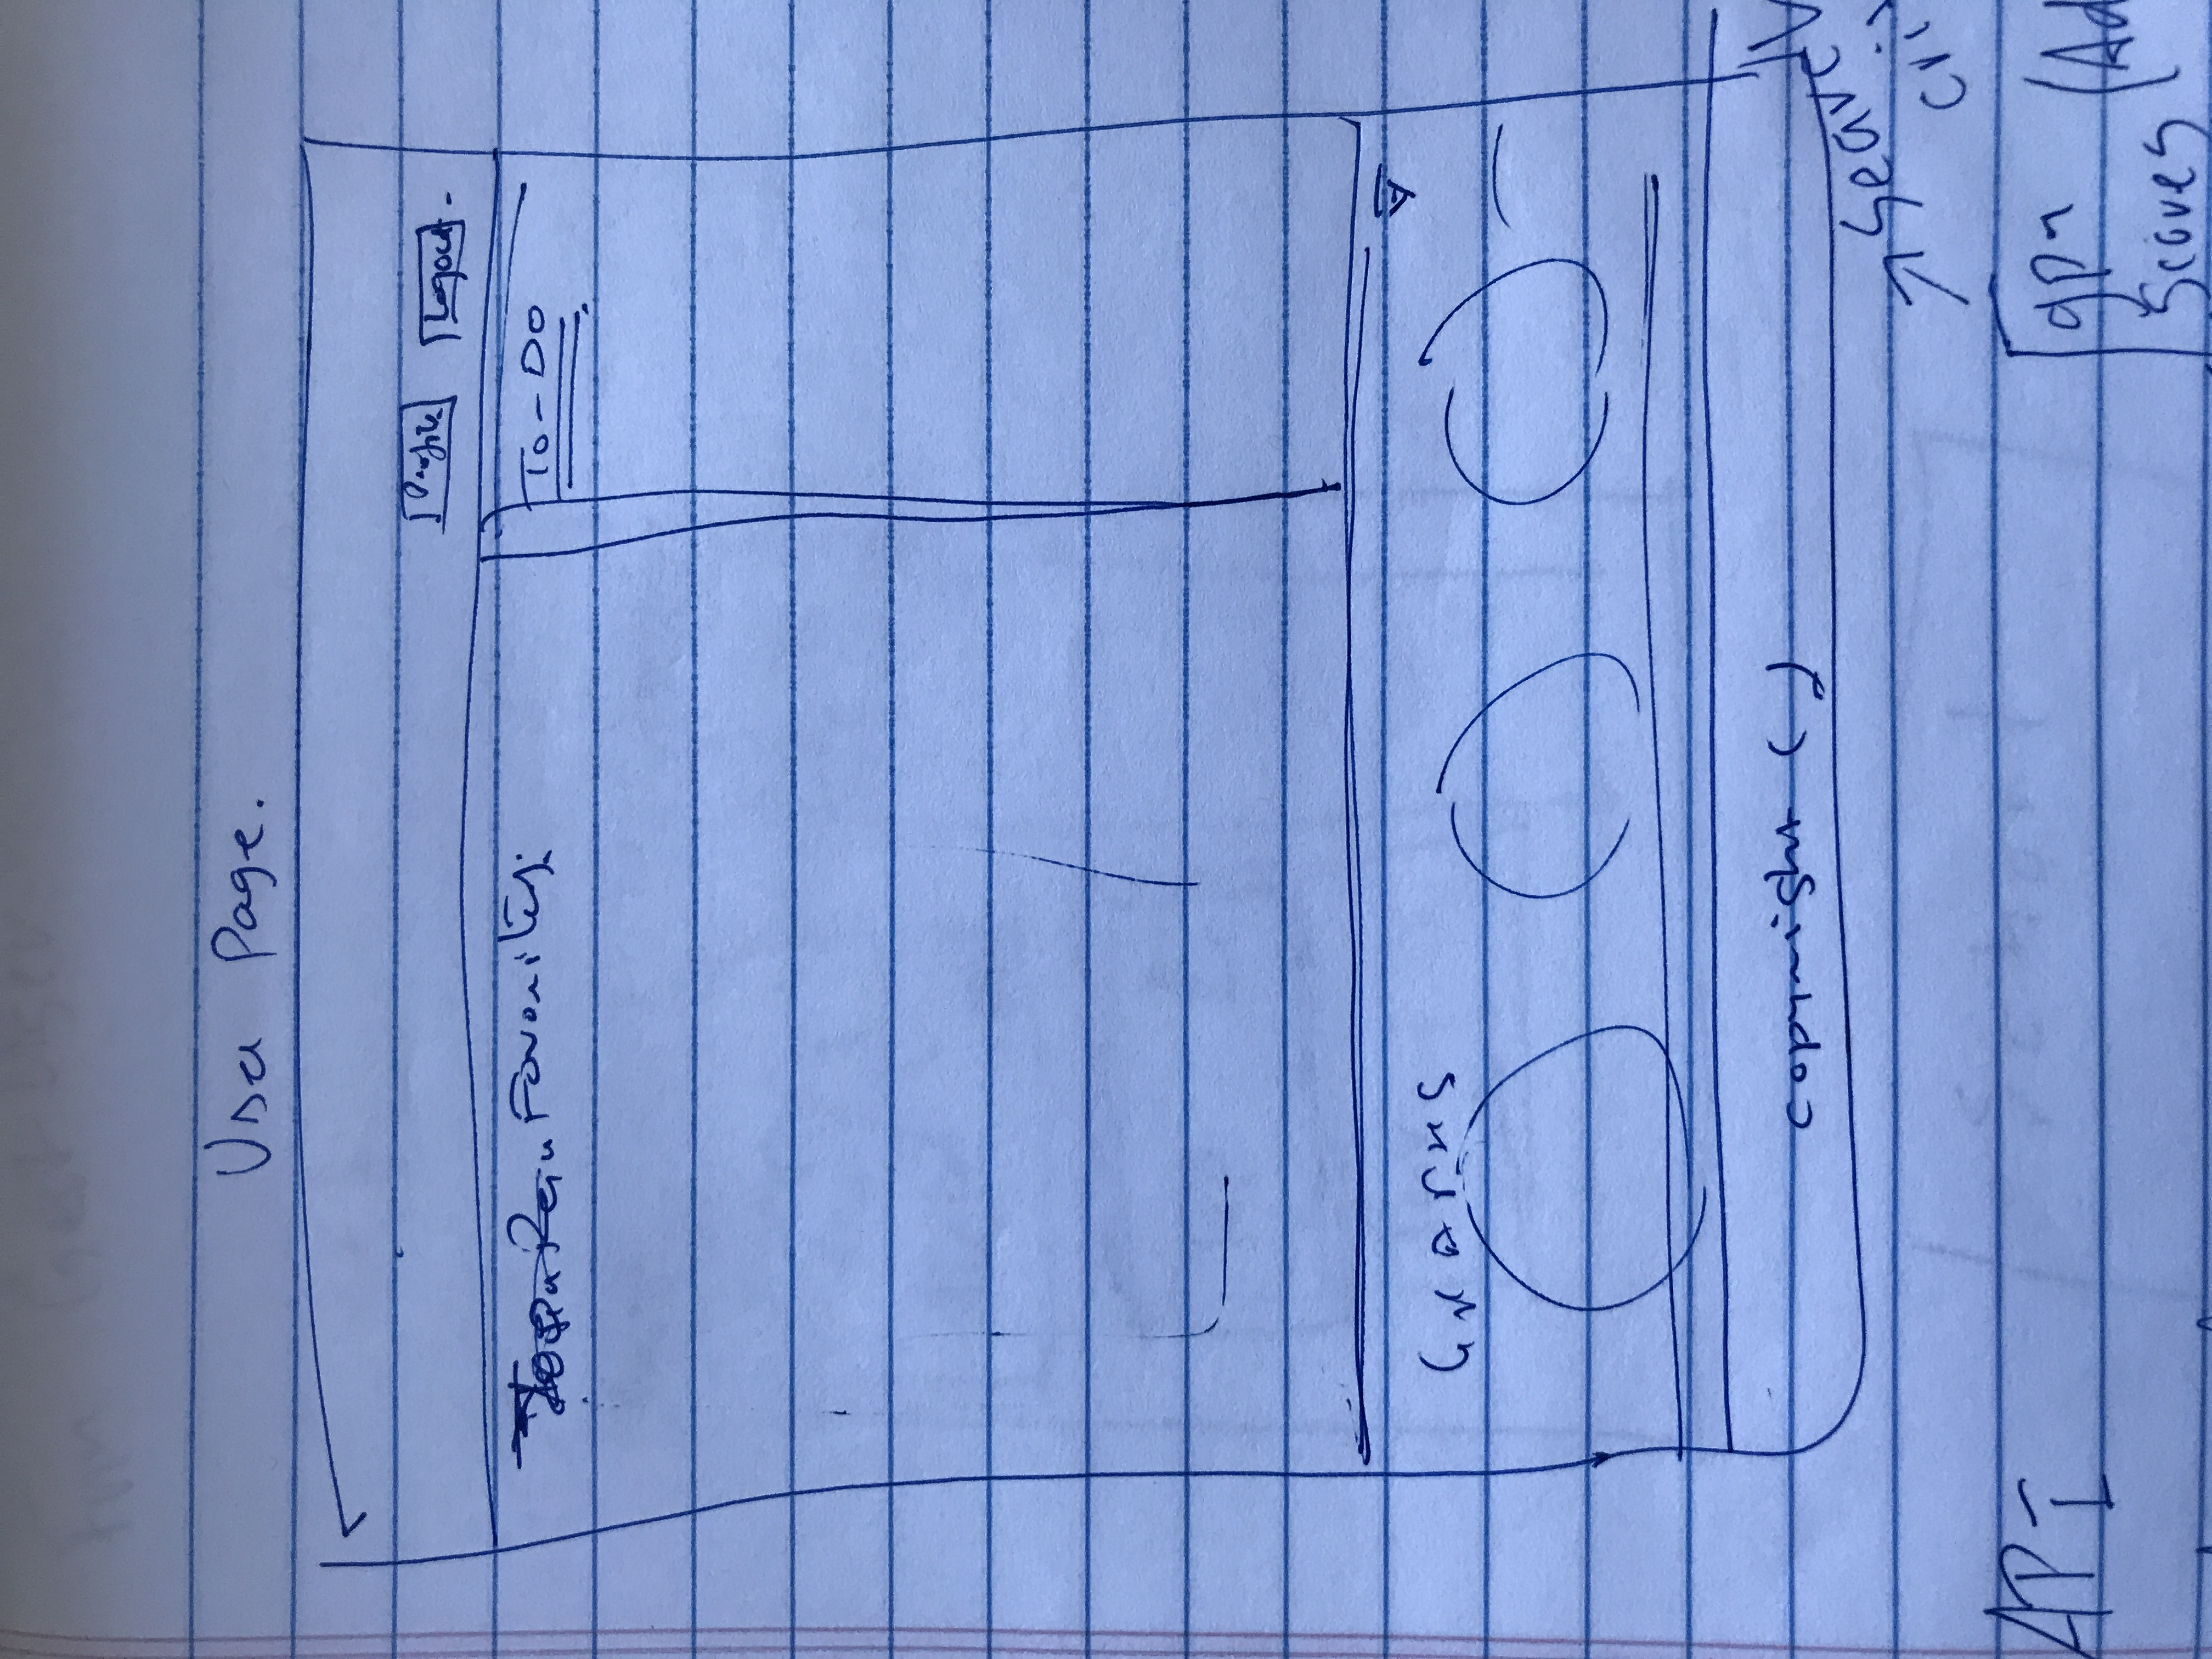 User Page.
Profile Logout
Favorites:
To-Do
GRAPHS
copyright ( )
Search
API
gpa
Scores